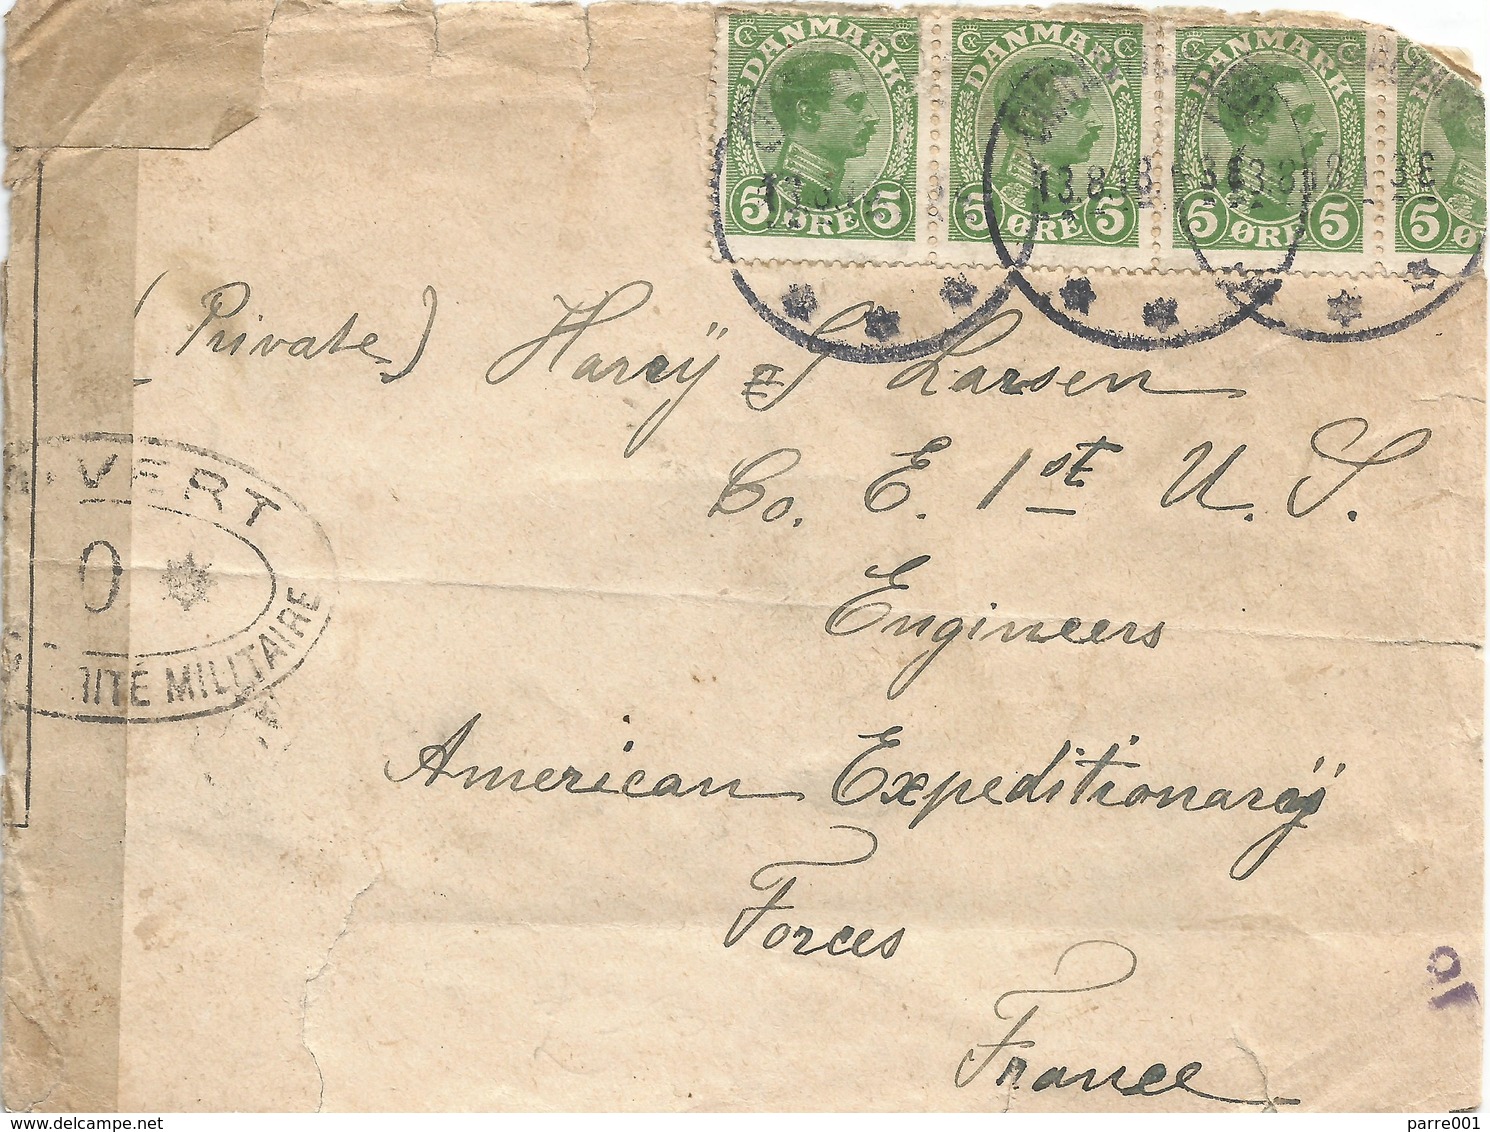 DANMARK DANMARK DANMARK
5 ØRE 5 5 ØRE 5 5 ØRE 5 5
13.8.18 13.8.18
(Private) Harry S Larsen
Co. E. 1st U. S.
Engineers
American Expeditionary
Forces
France
VERT
0
MILITAIRE
delcampe.net
parre001